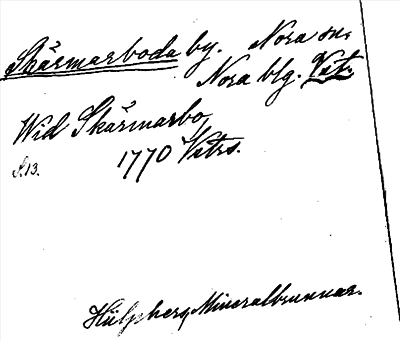 Skärmarboda by. Nora sn.
Nora blg. Vst.
Wid Skärmarbo,
S.13. 1770 Vstrs.
Hülphers, Mineralbrunnar.